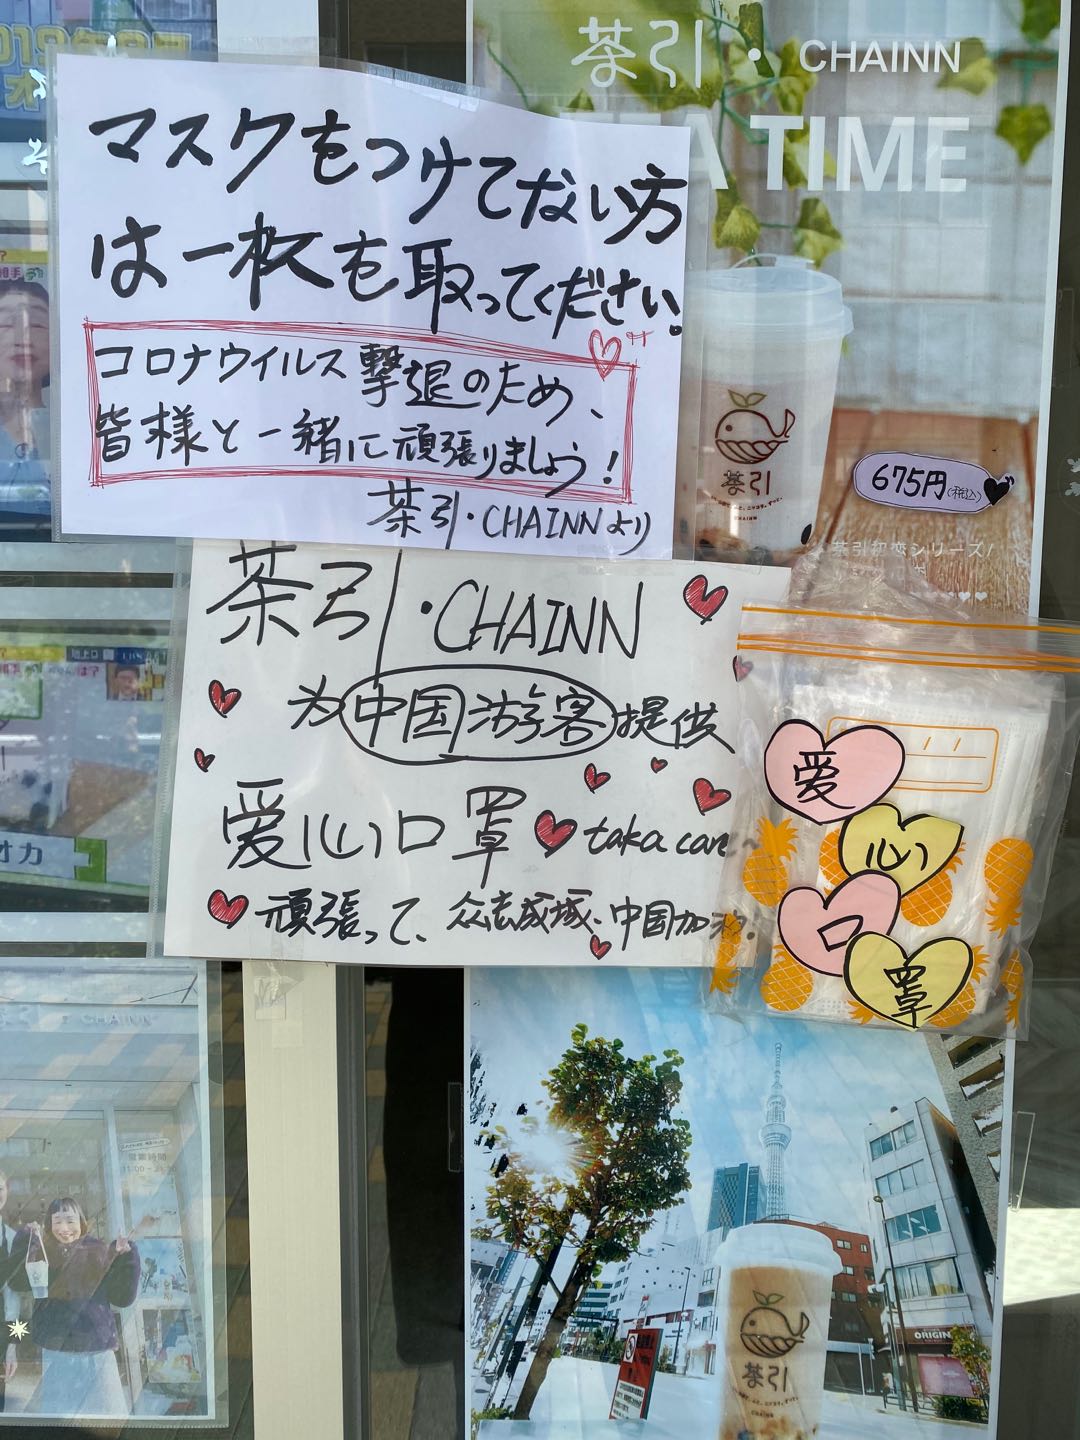 茶引・CHAINN
TIME
マスクをつけてない方
は一枚も取ってください。
コロナウイルス撃退のため、
皆様と一緒に頑張りましょう!
茶引・CHAINNより
茶引
CHAINN
675円(税込)
茶引初恋シリーズ
茶引・CHAINN
为中国游客提供
爱心口罩 taka care~
頑張って、众志成城、中国加油!
爱
心
口
罩
オカ
CHAINN
営業時間
ORIGIN
茶引
CHAINN